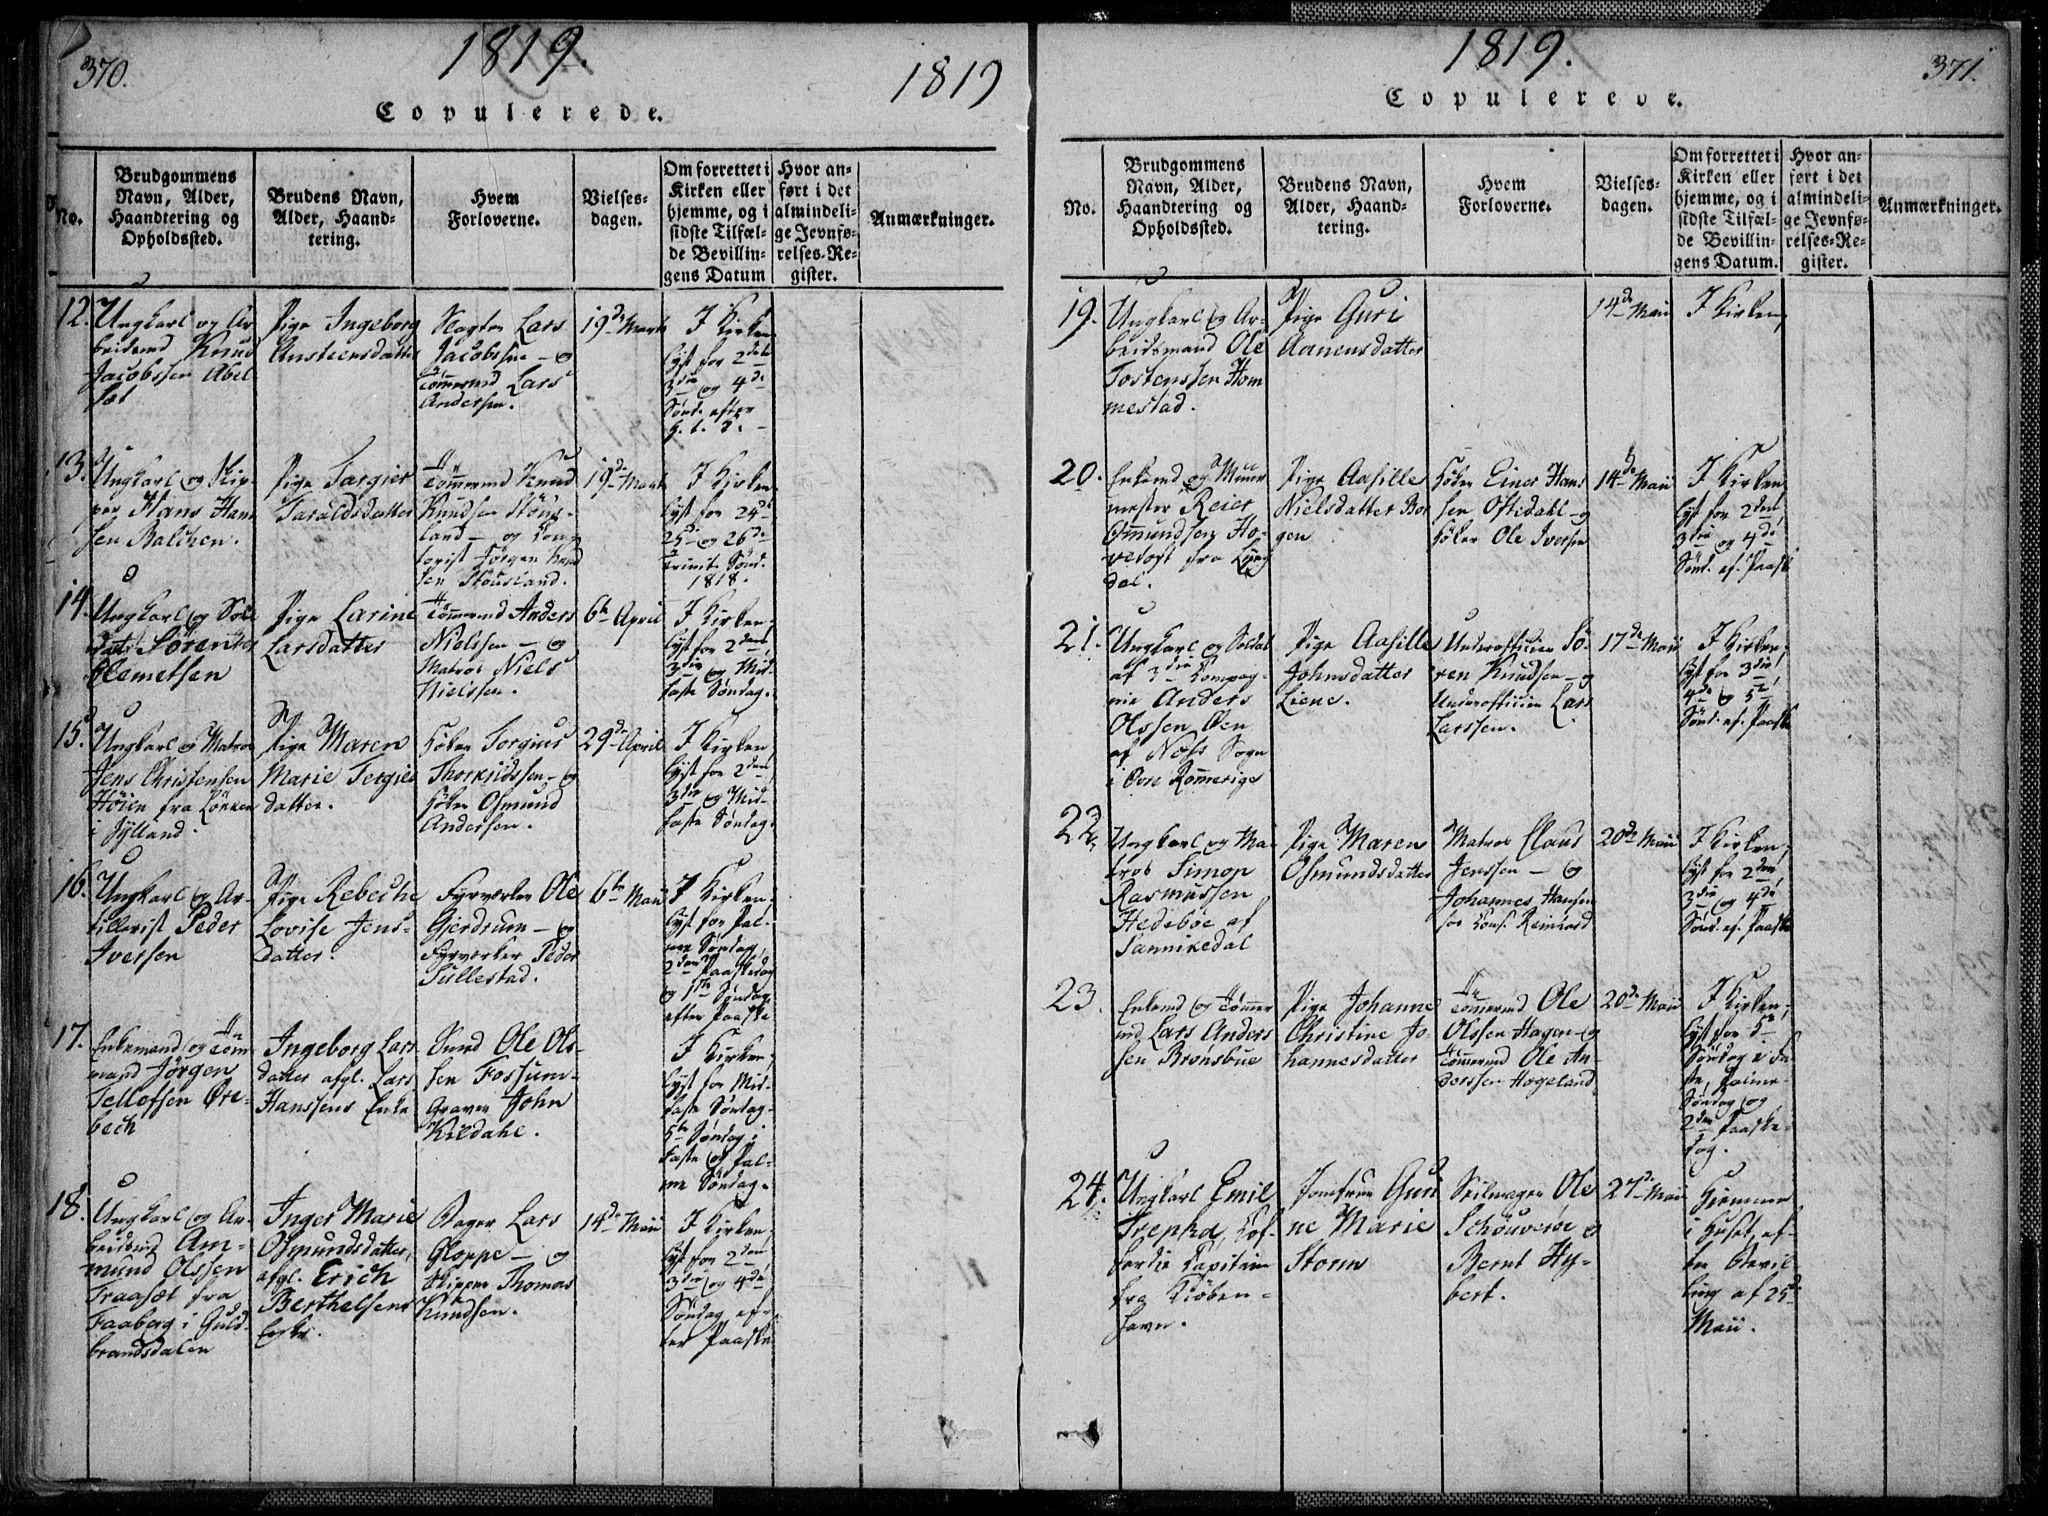 370.
1819.
1819
Copulerede.
No.
Brudgommens
Navn, Alder,
Haandtering og
Opholdssted.
Brudens Navn,
Alder, Haand-
tering.
Hvem
Forloverne.
Vielses-
dagen.
Om forrettet i
Kirken eller
hjemme, og i
sidste Tilfæl-
de Bevillin-
gens Datum
Hvor an-
ført i det
almindeli-
ge Jevnfø-
relses-Re-
gister.
Anmærkninger.
12.
Ungkarl og Ar-
beidsmd Knud
Jacobssen Abel-
sæt
Pige Ingeborg
Austeensdatter
Slagter Lars
Jacobssen - og
Tömmermd Lars
Andersen.
19de Marts
I Kirken,
lyst for 2den
3die og 4de
Sönd. efter
H. t. 3.
13.
Ungkarl og Skip-
per Hans Han-
sen Balchen.
Pige Targier
Taraldsdatter
Tömmermd Knud
Knudsen Stöus-
land - og Con-
torist Jörgen Knud
sen Stöusland.
19de Marts
I Kirken,
lyst for 24de
25de og 26de
Trinit. Sönd.
1818.
14.
Ungkarl og Sol-
dat Sören
Clemetsen
Pige Larine
Larsdatter
Tömmermd Anders
Nielssen - og
Matros Niels
Nielssen.
6te April
I Kirken,
lyst for 2den
3die og Mid-
faste Söndag.
15.
Ungkarl og Matros
Jens Christensen
Höien fra Lönken
i Jylland.
Pige Maren
Marie Tergies
datter.
Höker Torgius
Thorkridssen - og
Höker Osmund
Andersen.
29de April
I Kirken,
lyst for 2den
3die og Mid-
faste Söndag.
16.
Ungkarl og Ar-
tillerist Peder
Iversen
Pige Rebeche
Lovise Jens-
datter.
Fyrværker Ole
Gjerdrum - og
Fyrværker Peder
Tullestad.
6te Maii
I Kirken,
lyst for Pal-
me Söndag
2den Paaskedag
og 1ste Söndag
efter Paaske
17.
Enkemand og Töm-
mand Jörgen
Tellofsen Öre-
bech
Ingeborg Lars
datter afgl. Lars
Hanssens Enke
Smed Ole Ols-
sen Fossum-
Graver John
Kildahl.
I Kirken,
lyst for Mid-
faste Söndag-
5te Söndag i
Faste og Pal-
me Söndag.
18.
Ungkarl og Ar-
beidsmd Am-
mund Olssen
Fraasæt fra
Faaberg i Guld-
brandsdalen
Inger Marie
Osmundsdatter,
afgl. Erich
Berthelsens
Enke.
Bager Lars
Gloppe - og
Skipper Thomas
Knudsen.
14de Maii
I Kirken,
lyst for 2den
3die og 4de
Söndag ef-
ter Paaske
1819.
371.
Copulerede.
No.
Brudgommens
Navn, Alder,
Haandtering og
Opholdssted.
Brudens Navn,
Alder, Haand-
tering.
Hvem
Forloverne.
Vielses-
dagen.
Om forrettet i
Kirken eller
hjemme, og i
sidste Tilfæl-
de Bevillin-
gens Datum.
Hvor an-
ført i det
almindeli-
ge Jevnfø-
relses-Re-
gister.
Anmærkninger.
19.
Ungkarl og Ar-
beidsmand Ole
Tostenssen Hom
mestad.
Pige Guri
Aanensdatter
14de Maii
I Kirken,
20.
Enkemd og Muur
mester Reier
Ommundsen Ho-
vetoft fra Lyng
dal.
Pige Aasille
Nielsdatter Bor
gen
Höker Einer Hans
sen Oftedahl - og
Höker Ole Iversen
14de Maii
I Kirken,
lyst for 2den
3die og 4de
Sönd. ef. Paaske
21.
Ungkarl og Soldat
af 3die Kompag-
nie Anders
Olssen Öen
af Næss Sogn
i Övre Rommerige
Pige Aasille
Johnsdatter
Liene.
Underofficier Sö-
ren Knudsen - og
Underofficier Lars
Larssen.
17de Maii
I Kirken,
lyst for 3die
4de og 5te
Sönd. ef. Paaske
22.
Ungkarl og Ma-
tros Simon
Rasmussen
Hedeböe af
Sannikedal
Pige Maren
Osmundsdatter
Matros Claus
Jenssen - og
Johannes Hansen
hos Cons. Reinhard
20de Maii
I Kirken,
lyst for 2den
3die og 4de
Sönd. ef. Paaske
23.
Enkemd og Tömmer
md Lars Anders
sen Brönsbue
Pige Johanne
Christine Jo-
hannesdatter
Tömmermd Ole
Olssen Hagen - og
Tömmermd Ole An-
derssen Hogeland
20de Maii
I Kirken,
lyst for 5te
Söndag i Fa-
ste, Palme-
Söndag og
2den Paaske-
dag.
24.
Ungkarl Emil
Trepka, Cof-
fardie Capitain
fra Kiöben-
havn.
Jomfrue Guri
ne Marie
Storm
Seilmager Ole
Schouveröe og
Bernt Hy-
bert.
27de Maii
Hjemme
i Huset, ef-
ter Bevil-
ling af 25de
Maii.